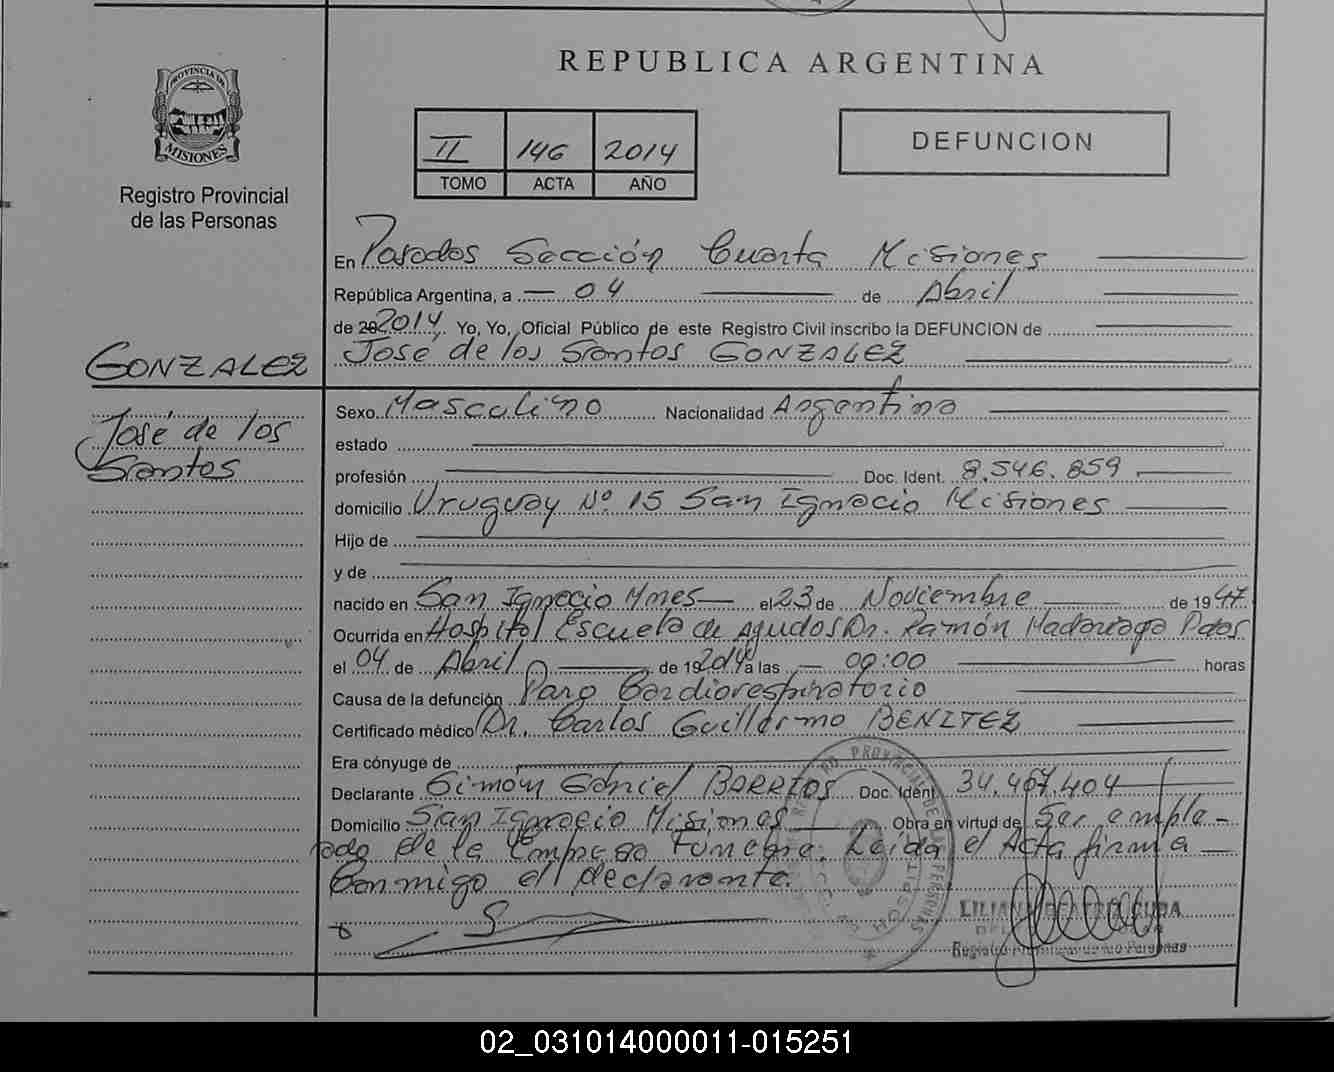 REPUBLICA ARGENTINA
PROVINCIA DE
MISIONES
Registro Provincial
de las Personas
II 146 2014
TOMO ACTA AÑO
DEFUNCION
En Posadas Sección Cuarta Misiones
República Argentina, a 04 de Abril
de 20 2014, Yo, Yo, Oficial Público de este Registro Civil inscribo la DEFUNCION de
José de los Santos GONZALEZ
GONZALEZ
José de los
Santos
Sexo Masculino Nacionalidad Argentina
estado
profesión Doc. Ident. 8.546.859
domicilio Uruguay Nº 15 San Ignacio Misiones
Hijo de
y de
nacido en San Ignacio Mnes el 23 de Noviembre de 19 47
Ocurrida en Hospital Escuela de Agudos Dr. Ramón Madariaga Pdas
el 04 de Abril de 19 2014 a las 00:00 horas
Causa de la defunción Paro Cardiorespiratorio
Certificado médico Dr. Carlos Guillermo BENITEZ
Era cónyuge de
Declarante Simón Gabriel BARRIOS Doc. Ident. 34.467.404
Domicilio San Ignacio Misiones Obra en virtud de Ser emple-
ado de la Empresa Funebre. Leída el Acta firma
Conmigo el declarante.
REGISTRO PROVINCIAL DE LAS PERSONAS
LILIANA BEATRIZ
Registro Provincial de las Personas
02_031014000011-015251